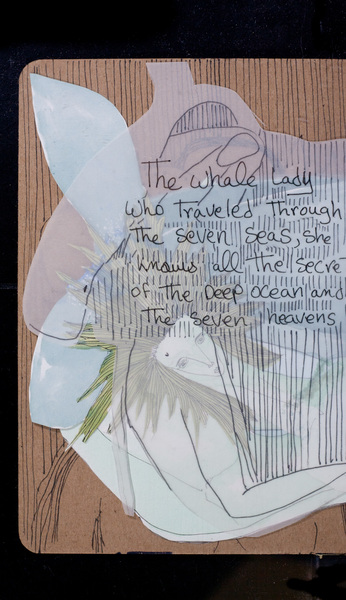 The whale Lady
who Traveled Through
The seven seas, she
knows all The secre
of The Deep ocean and
The seven heavens